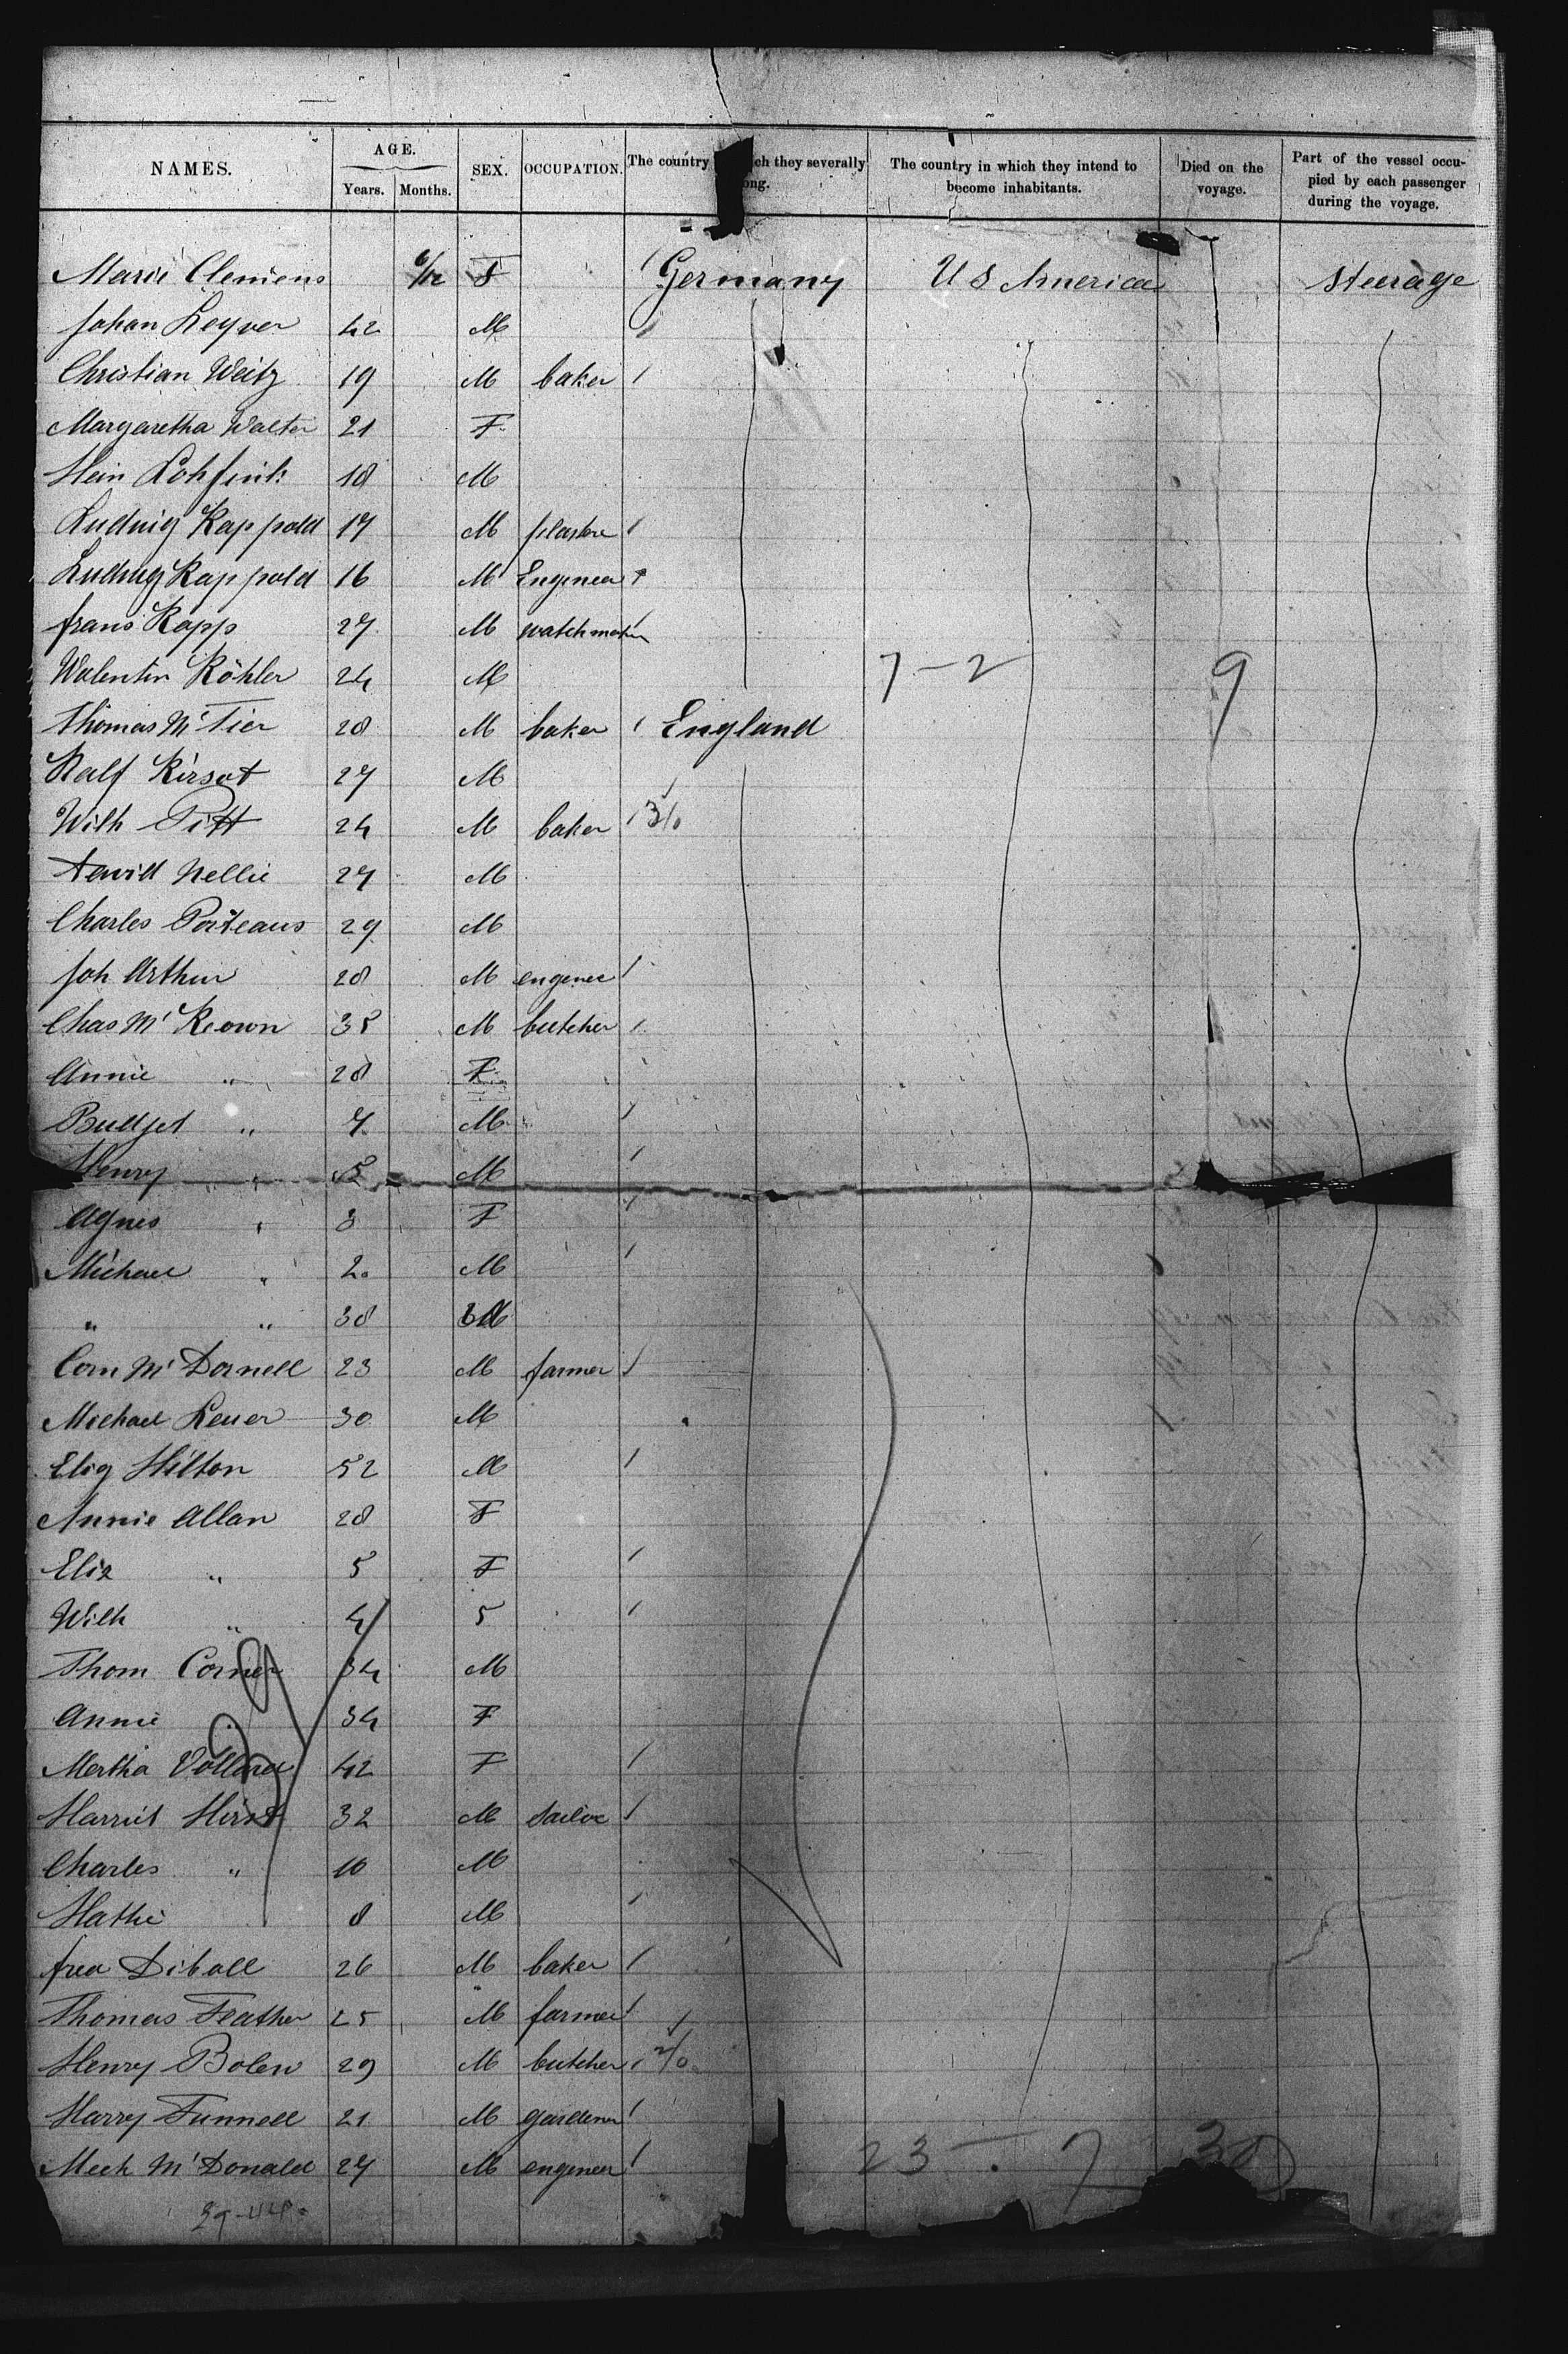 NAMES. AGE. SEX. OCCUPATION. The country ch they severally ong. The country in which they intend to become inhabitants. Died on the voyage. Part of the vessel occupied by each passenger during the voyage.
Years. Months.
Marie Clemens 6/12 F Germany U S America steerage
Johan Leyver 42 M
Christian Weitz 19 M baker
Margaretha Walter 21 F
Hein Lohfink 18 M
Ludwig Rappold 17 M
Ludwig Rappold 16 M Engineer
frans Rapp 27 M watchmaker
Valentin Köhler 24 M 7-2 9
Thomas Mc Tier 28 M baker England
Ralf Kirsot 27 M
Wilh Pitt 24 M baker
Nellie 27 M
Charles Porteaus 29 M
Joh Arthur 28 M engeneer
Chas Mc Keown 35 M butcher
Annie " 28 F
Budjet " 7 M
Henry " 5 M
Agnes " 3 F
Michael " 2 M
" " 38 M
Corn Mc Dornell 23 M farmer
Michael Lever 30 M
Elig Hilton 52 M
Annie Allan 28 F
Eliz " 5 F
Wilh " 4 5
Thom Corner 34 M
Annie " 34 F
Mertha 42 F
Harriet Hirst 32 M
Charles " 10 M
Hathi 8 M
Diball 26 M baker
Thomas Feather 25 M farmer
Henry Bolen 29 M butcher
Harry Funnell 21 M gardener
Mich Mc Donald 27 M engineer
23 - 7 30